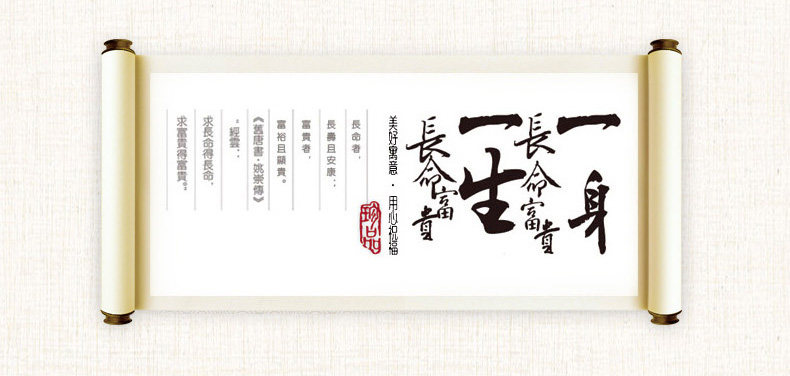 一身
長命富貴
一生
長命富貴
美好寓意·用心祝福
珍品
長命者，
長壽且安康；
富貴者，
富裕且顯貴。
《舊唐書·姚崇傳》
“經雲：
求長命得長命，
求富貴得富貴。”